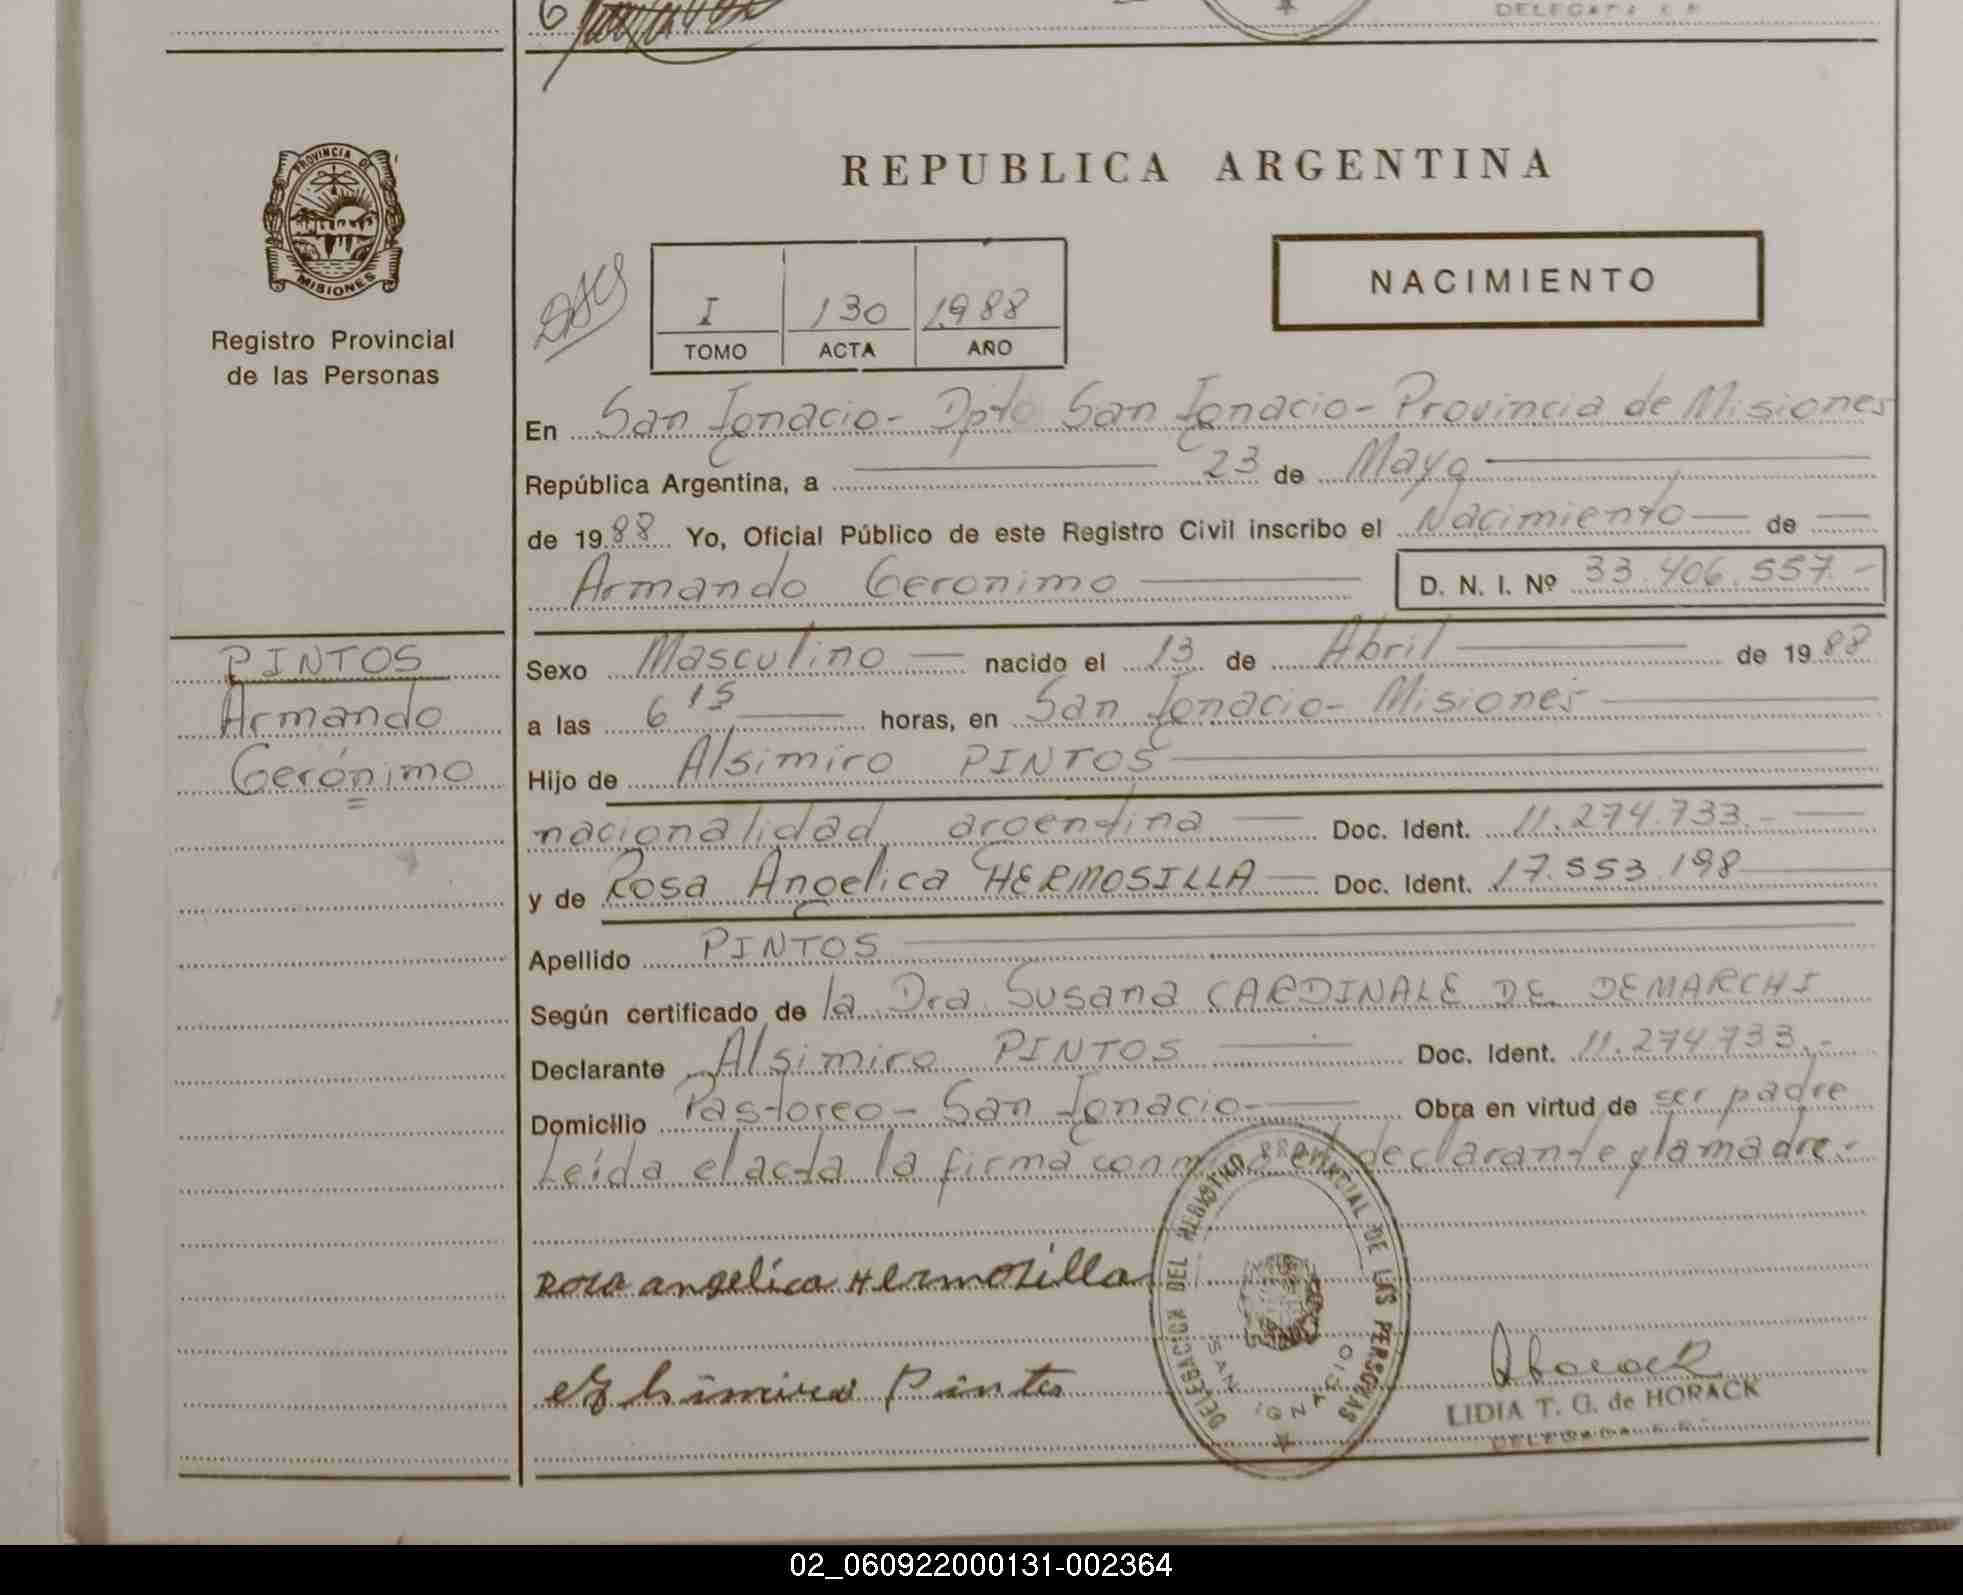 DELEGADA R. P.
PROVINCIA DE
MISIONES
Registro Provincial
de las Personas
REPUBLICA ARGENTINA
NACIMIENTO
I 130 1988
TOMO ACTA AÑO
En San Ignacio - Dpto San Ignacio - Provincia de Misiones
República Argentina, a 23 de Mayo
de 1988 Yo, Oficial Público de este Registro Civil inscribo el Nacimiento de
Armando Geronimo D. N. I. Nº 33.406.557.-
PINTOS
Armando
Gerónimo
Sexo Masculino nacido el 13 de Abril de 1988
a las 6 15 horas, en San Ignacio - Misiones
Hijo de Alsimiro PINTOS
nacionalidad argentina Doc. Ident. 11.274.733.-
y de Rosa Angelica HERMOSILLA Doc. Ident. 17.553.198
Apellido PINTOS
Según certificado de la Dra. Susana CARDINALE DE DEMARCHI
Declarante Alsimiro PINTOS Doc. Ident. 11.274.733.-
Domicilio Pastoreo - San Ignacio - Obra en virtud de ser padre
Leída el acta la firma conmigo el declarante y la madre.-
Rosa angelica Hermosilla
DELEGACION DEL REGISTRO PROVINCIAL DE LAS PERSONAS
SAN IGNACIO
Pintos
LIDIA T. G. de HORACK
DELEGADA R. P.
02_060922000131-002364